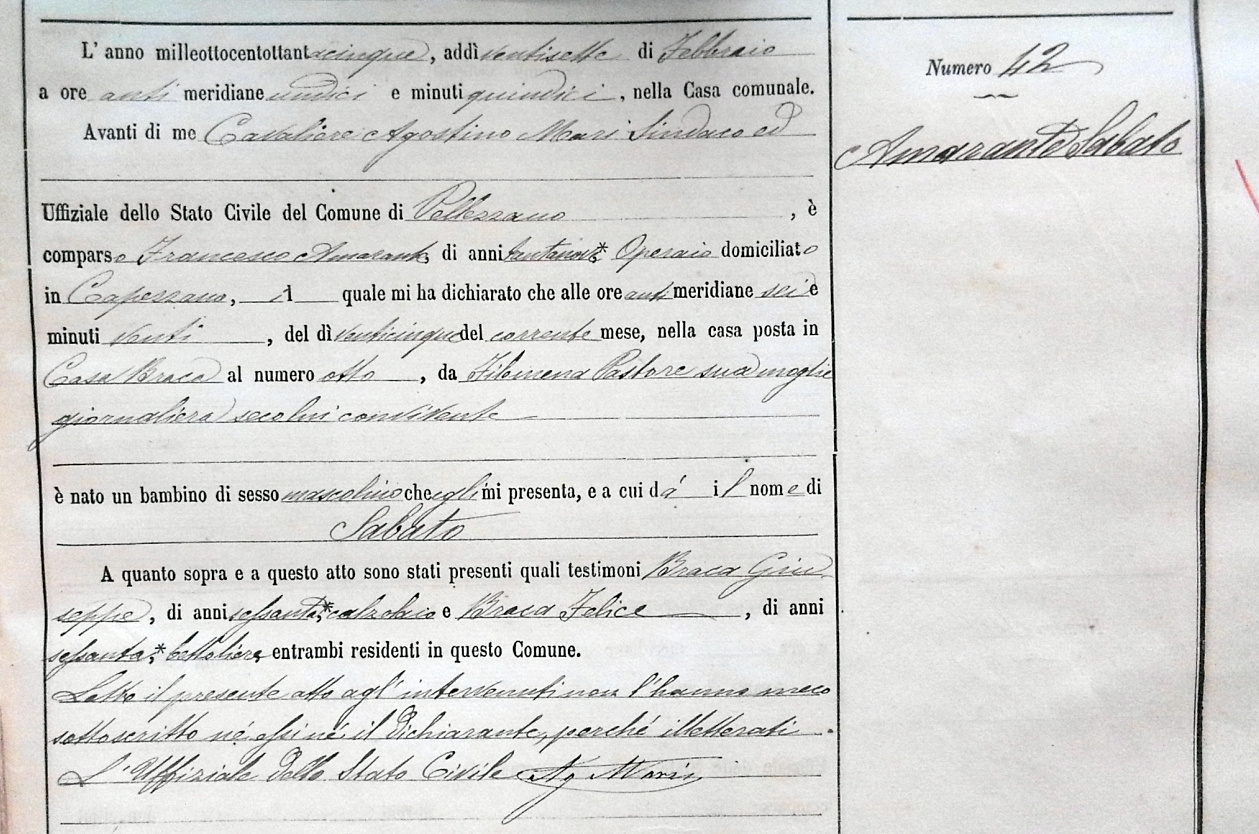 L' anno milleottocentottantacinque, addì ventisette di Febbraio
a ore anti meridiane undici e minuti quindici, nella Casa comunale.
Avanti di me Cavaliere Agostino Mari Sindaco ed
Uffiziale dello Stato Civile del Comune di Pellezzano, è
comparso Francesco Amarante, di anni Operaio domiciliato
in Capezzano, il quale mi ha dichiarato che alle ore antimeridiane sei e
minuti venti, del dì venticinque del corrente mese, nella casa posta in
Casa Braca al numero otto, da Filomena Pastore sua moglie
giornaliera seco lui convivente
è nato un bambino di sesso mascolino che egli mi presenta, e a cui dà il nome di
Sabato
A quanto sopra e a questo atto sono stati presenti quali testimoni Braca Giu
seppe, di anni sessanta,* calzolaio e Braca Felice, di anni
sessanta,* bettoliere, entrambi residenti in questo Comune.
Letto il presente atto agl' intervenuti non l'hanno meco
sottoscritto né essi né il dichiarante, perché illetterati.
L'Uffiziale dello Stato Civile Ag Mari
Numero 42
Amarante Sabato